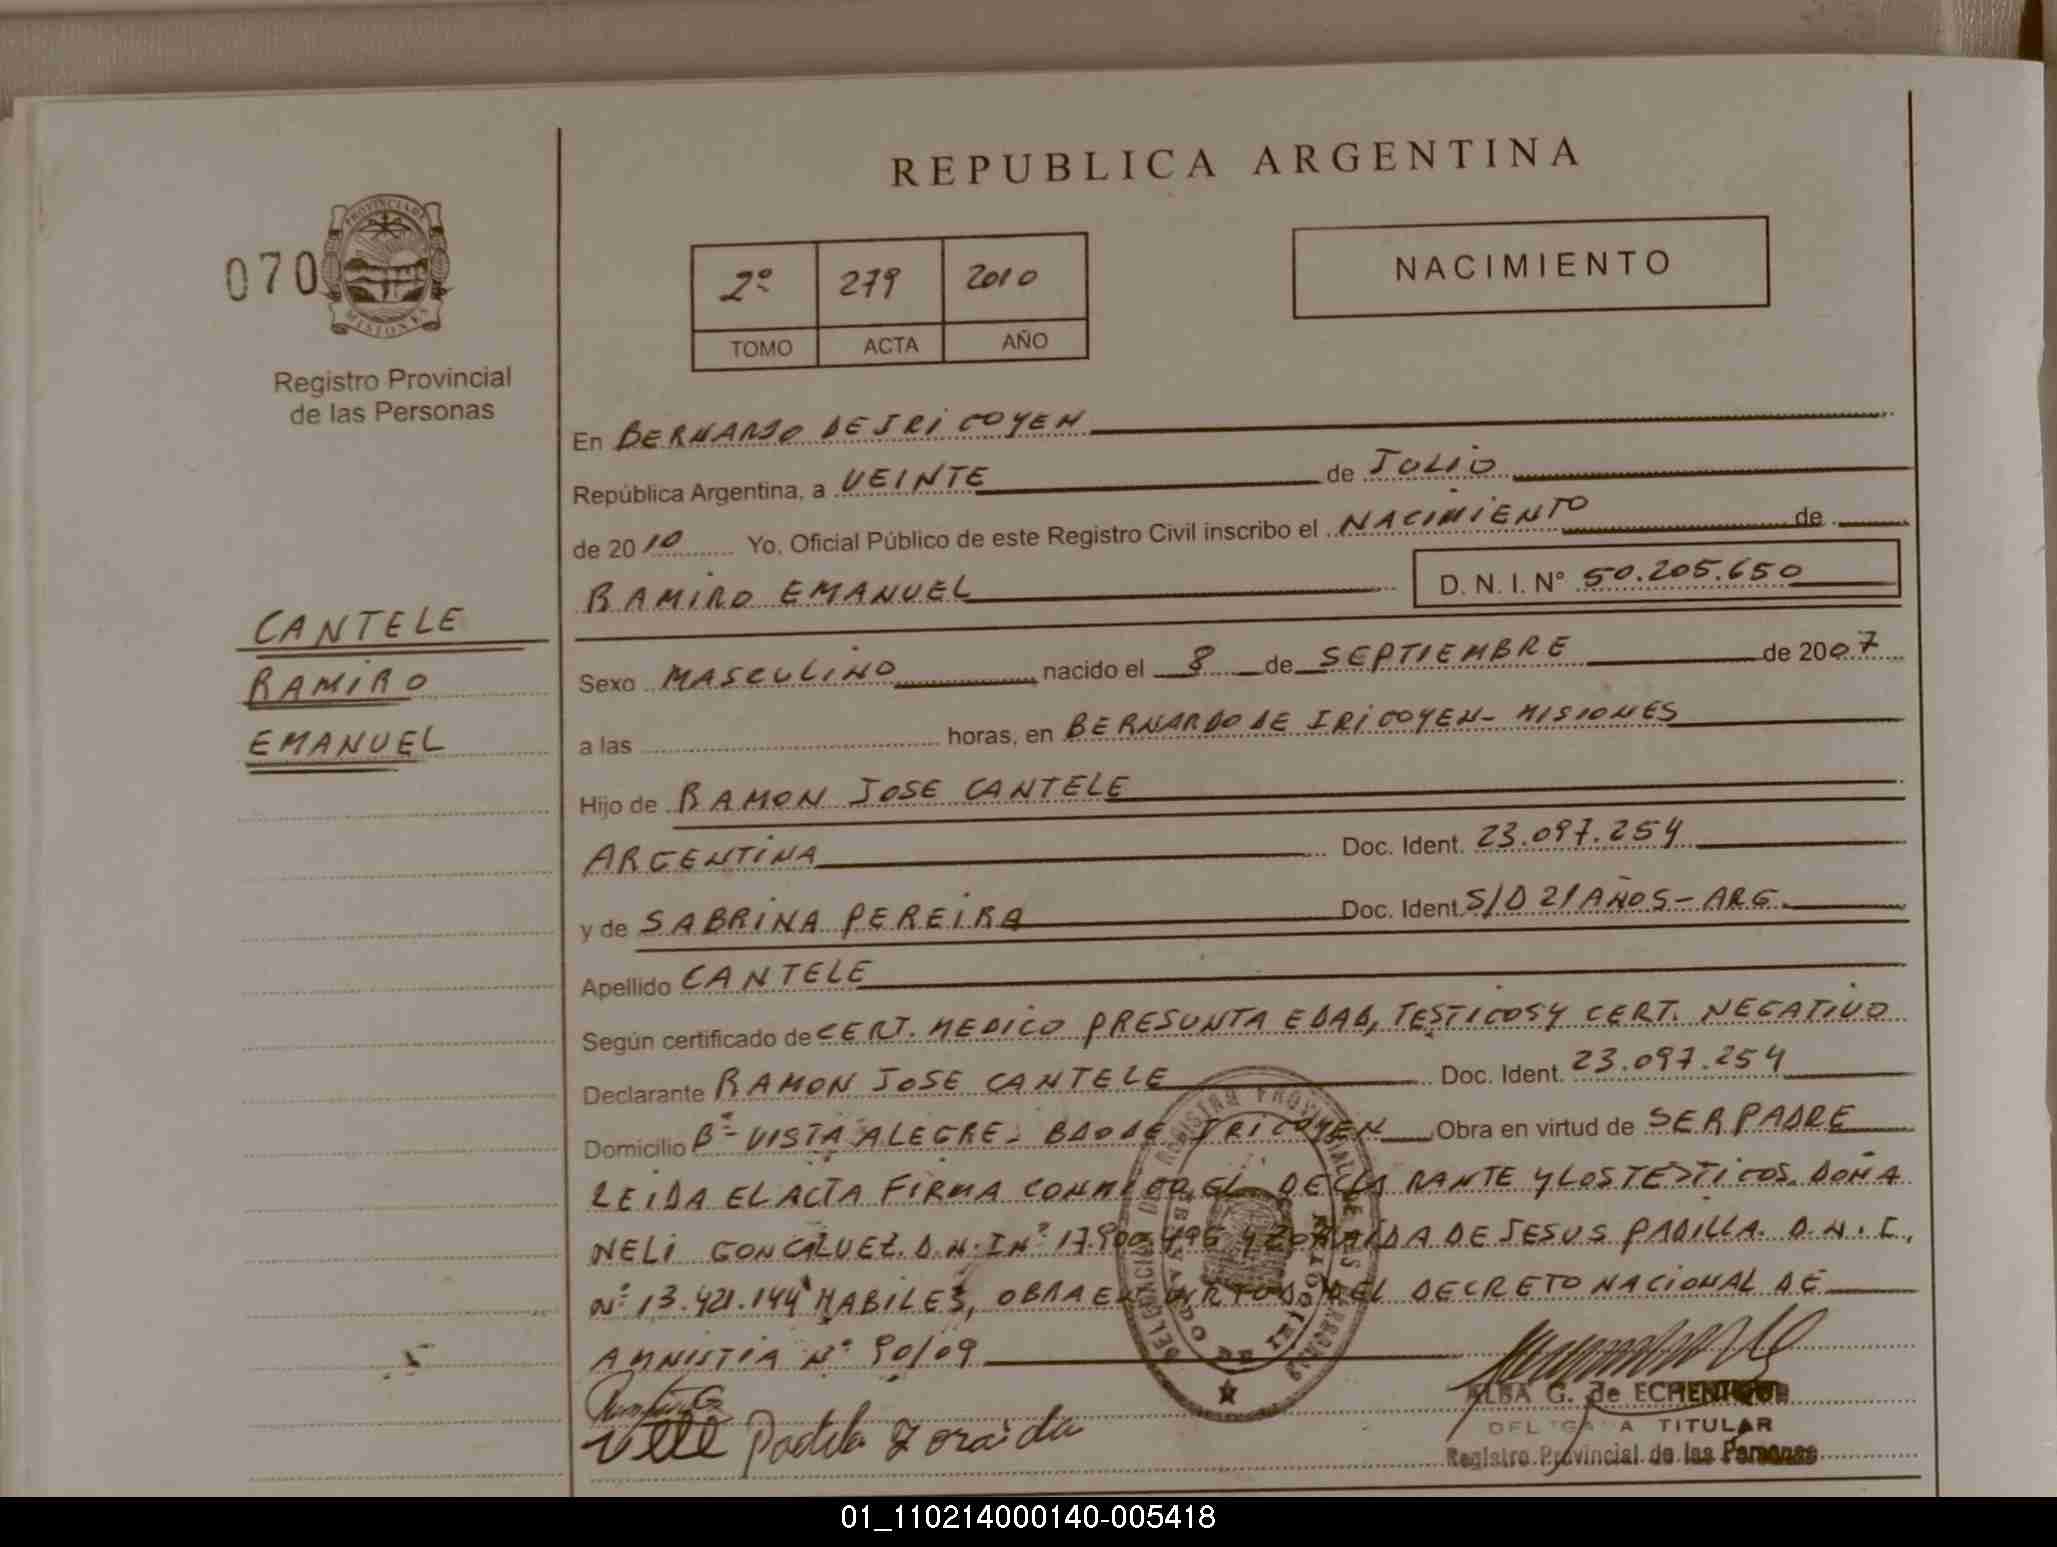 REPUBLICA ARGENTINA
070
PROVINCIA DE
MISIONES
Registro Provincial
de las Personas
2º 279 2010
TOMO ACTA AÑO
NACIMIENTO
En BERNARDO DE IRIGOYEN
República Argentina, a VEINTE de JULIO
de 2010 Yo, Oficial Público de este Registro Civil inscribo el NACIMIENTO de
RAMIRO EMANUEL D. N. I. Nº 50.205.650
CANTELE
RAMIRO
EMANUEL
Sexo MASCULINO nacido el 8 de SEPTIEMBRE de 2007
a las horas, en BERNARDO DE IRIGOYEN - MISIONES
Hijo de RAMON JOSE CANTELE
ARGENTINA Doc. Ident. 23.097.254
y de SABRINA PEREIRA Doc. Ident. S/D 21 AÑOS - ARG.
Apellido CANTELE
Según certificado de CERT. MEDICO PRESUNTA EDAD, TESTIGOS Y CERT. NEGATIVO
Declarante RAMON JOSE CANTELE Doc. Ident. 23.097.254
Domicilio Bº VISTA ALEGRE - BDO DE IRIGOYEN Obra en virtud de SER PADRE
LEIDA EL ACTA FIRMA CONMIGO EL DECLARANTE Y LOS TESTIGOS. DOÑA
NELI D.N.I Nº Y ZORAIDA DE JESUS PADILLA. D.N.I.
Nº 13.421.144 HABILES, OBRA EN VIRTUD DEL DECRETO NACIONAL DE
AMNISTIA Nº 90/09
Padilla Zoraida
ALBA G. de ECHENIQUE
DELEGADA TITULAR
Registro Provincial de las Personas
01_110214000140-005418